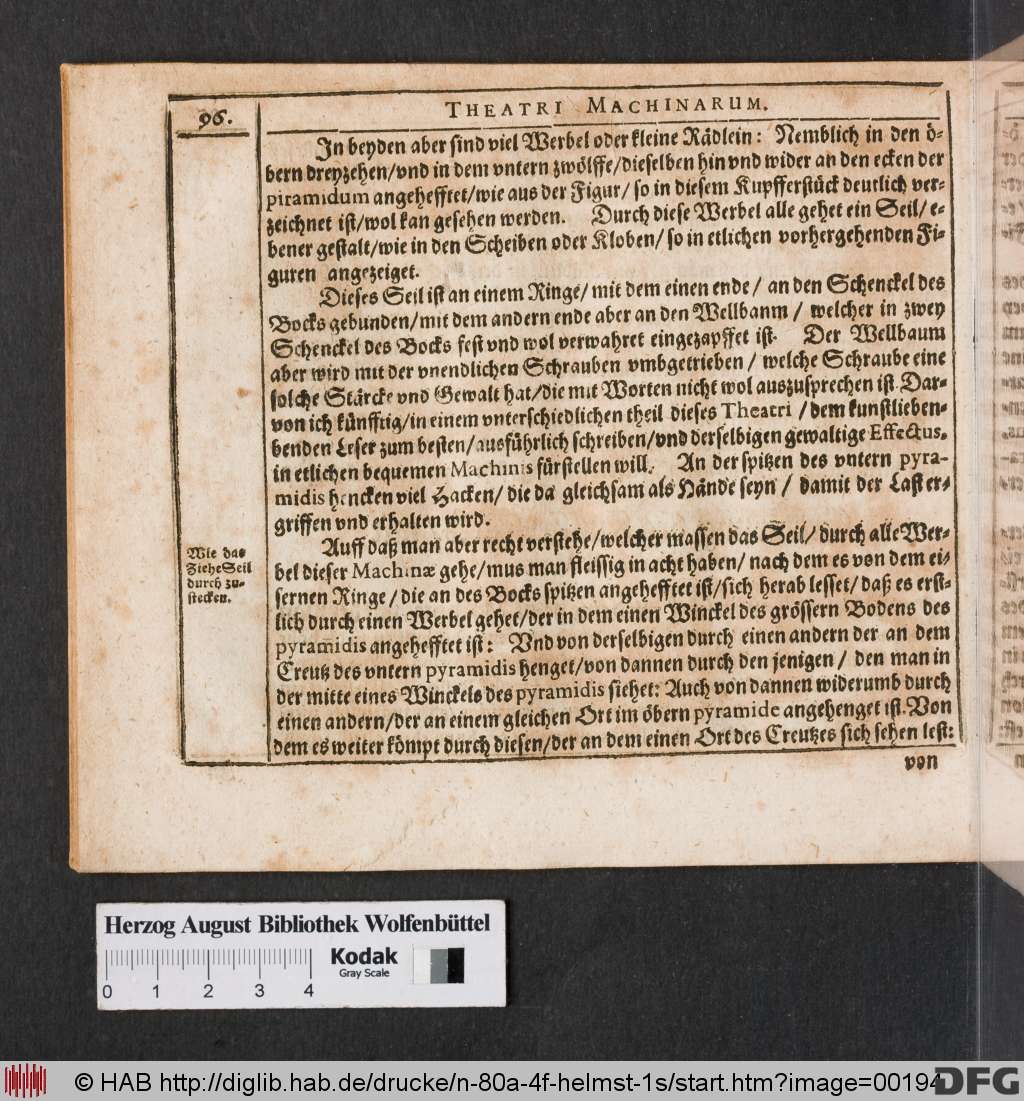 96.
THEATRI MACHINARUM.
In beyden aber sind viel Werbel oder kleine Rädlein: Nemblich in den ö-
bern dreyzehen/vnd in dem vntern zwölffe/dieselben hin vnd wider an den ecken der
piramidum angehefftet/wie aus der Figur/ so in diesem Kupfferstück deutlich ver-
zeichnet ist/wol kan gesehen werden. Durch diese Werbel alle gehet ein Seil/ e-
bener gestalt/wie in den Scheiben oder Kloben/ so in etlichen vorhergehenden Fi-
guren angezeiget.
Dieses Seil ist an einem Ringe/ mit dem einen ende/ an den Schenckel des
Bocks gebunden/mit dem andern ende aber an den Wellbanm / welcher in zwey
Schenckel des Bocks fest vnd wol verwahret eingezapffet ist. Der Wellbaum
aber wird mit der vnendlichen Schrauben vmbgetrieben / welche Schraube eine
solche Stärcke vnd Gewalt hat/die mit Worten nicht wol auszusprechen ist. Dar-
von ich künfftig/in einem vnterschiedlichen theil dieses Theatri / dem kunstlieben-
benden Leser zum besten/ausführlich schreiben/vnd derselbigen gewaltige Effectus,
in etlichen bequemen Machinis fürstellen will. An der spitzen des vntern pyra-
midis hencken viel Hacken/ die da gleichsam als Hände seyn / damit der Last er-
griffen vnd erhalten wird.
Wie das
Ziehe Seil
durch zu-
stecken.
Auff daß man aber recht verstehe/welcher massen das Seil/ durch alle Wer-
bel dieser Machinæ gehe/mus man fleissig in acht haben/ nach dem es von dem ei-
sernen Ringe / die an des Bocks spitzen angehefftet ist/sich herab lesset/ daß es erst-
lich durch einen Werbel gehet/der in dem einen Winckel des grössern Bodens des
pyramidis angehefftet ist: Vnd von derselbigen durch einen andern der an dem
Creutz des vntern pyramidis henget/von dannen durch den jenigen / den man in
der mitte eines Winckels des pyramidis siehet: Auch von dannen widerumb durch
einen andern/der an einem gleichen Ort im öbern pyramide angehenget ist. Von
dem es weiter kömpt durch diesen/der an dem einen Ort des Creutzes sich sehen lest:
von
Herzog August Bibliothek Wolfenbüttel
Kodak
Gray Scale
0 1 2 3 4
© HAB http://diglib.hab.de/drucke/n-80a-4f-helmst-1s/start.htm?image=00194
DFG